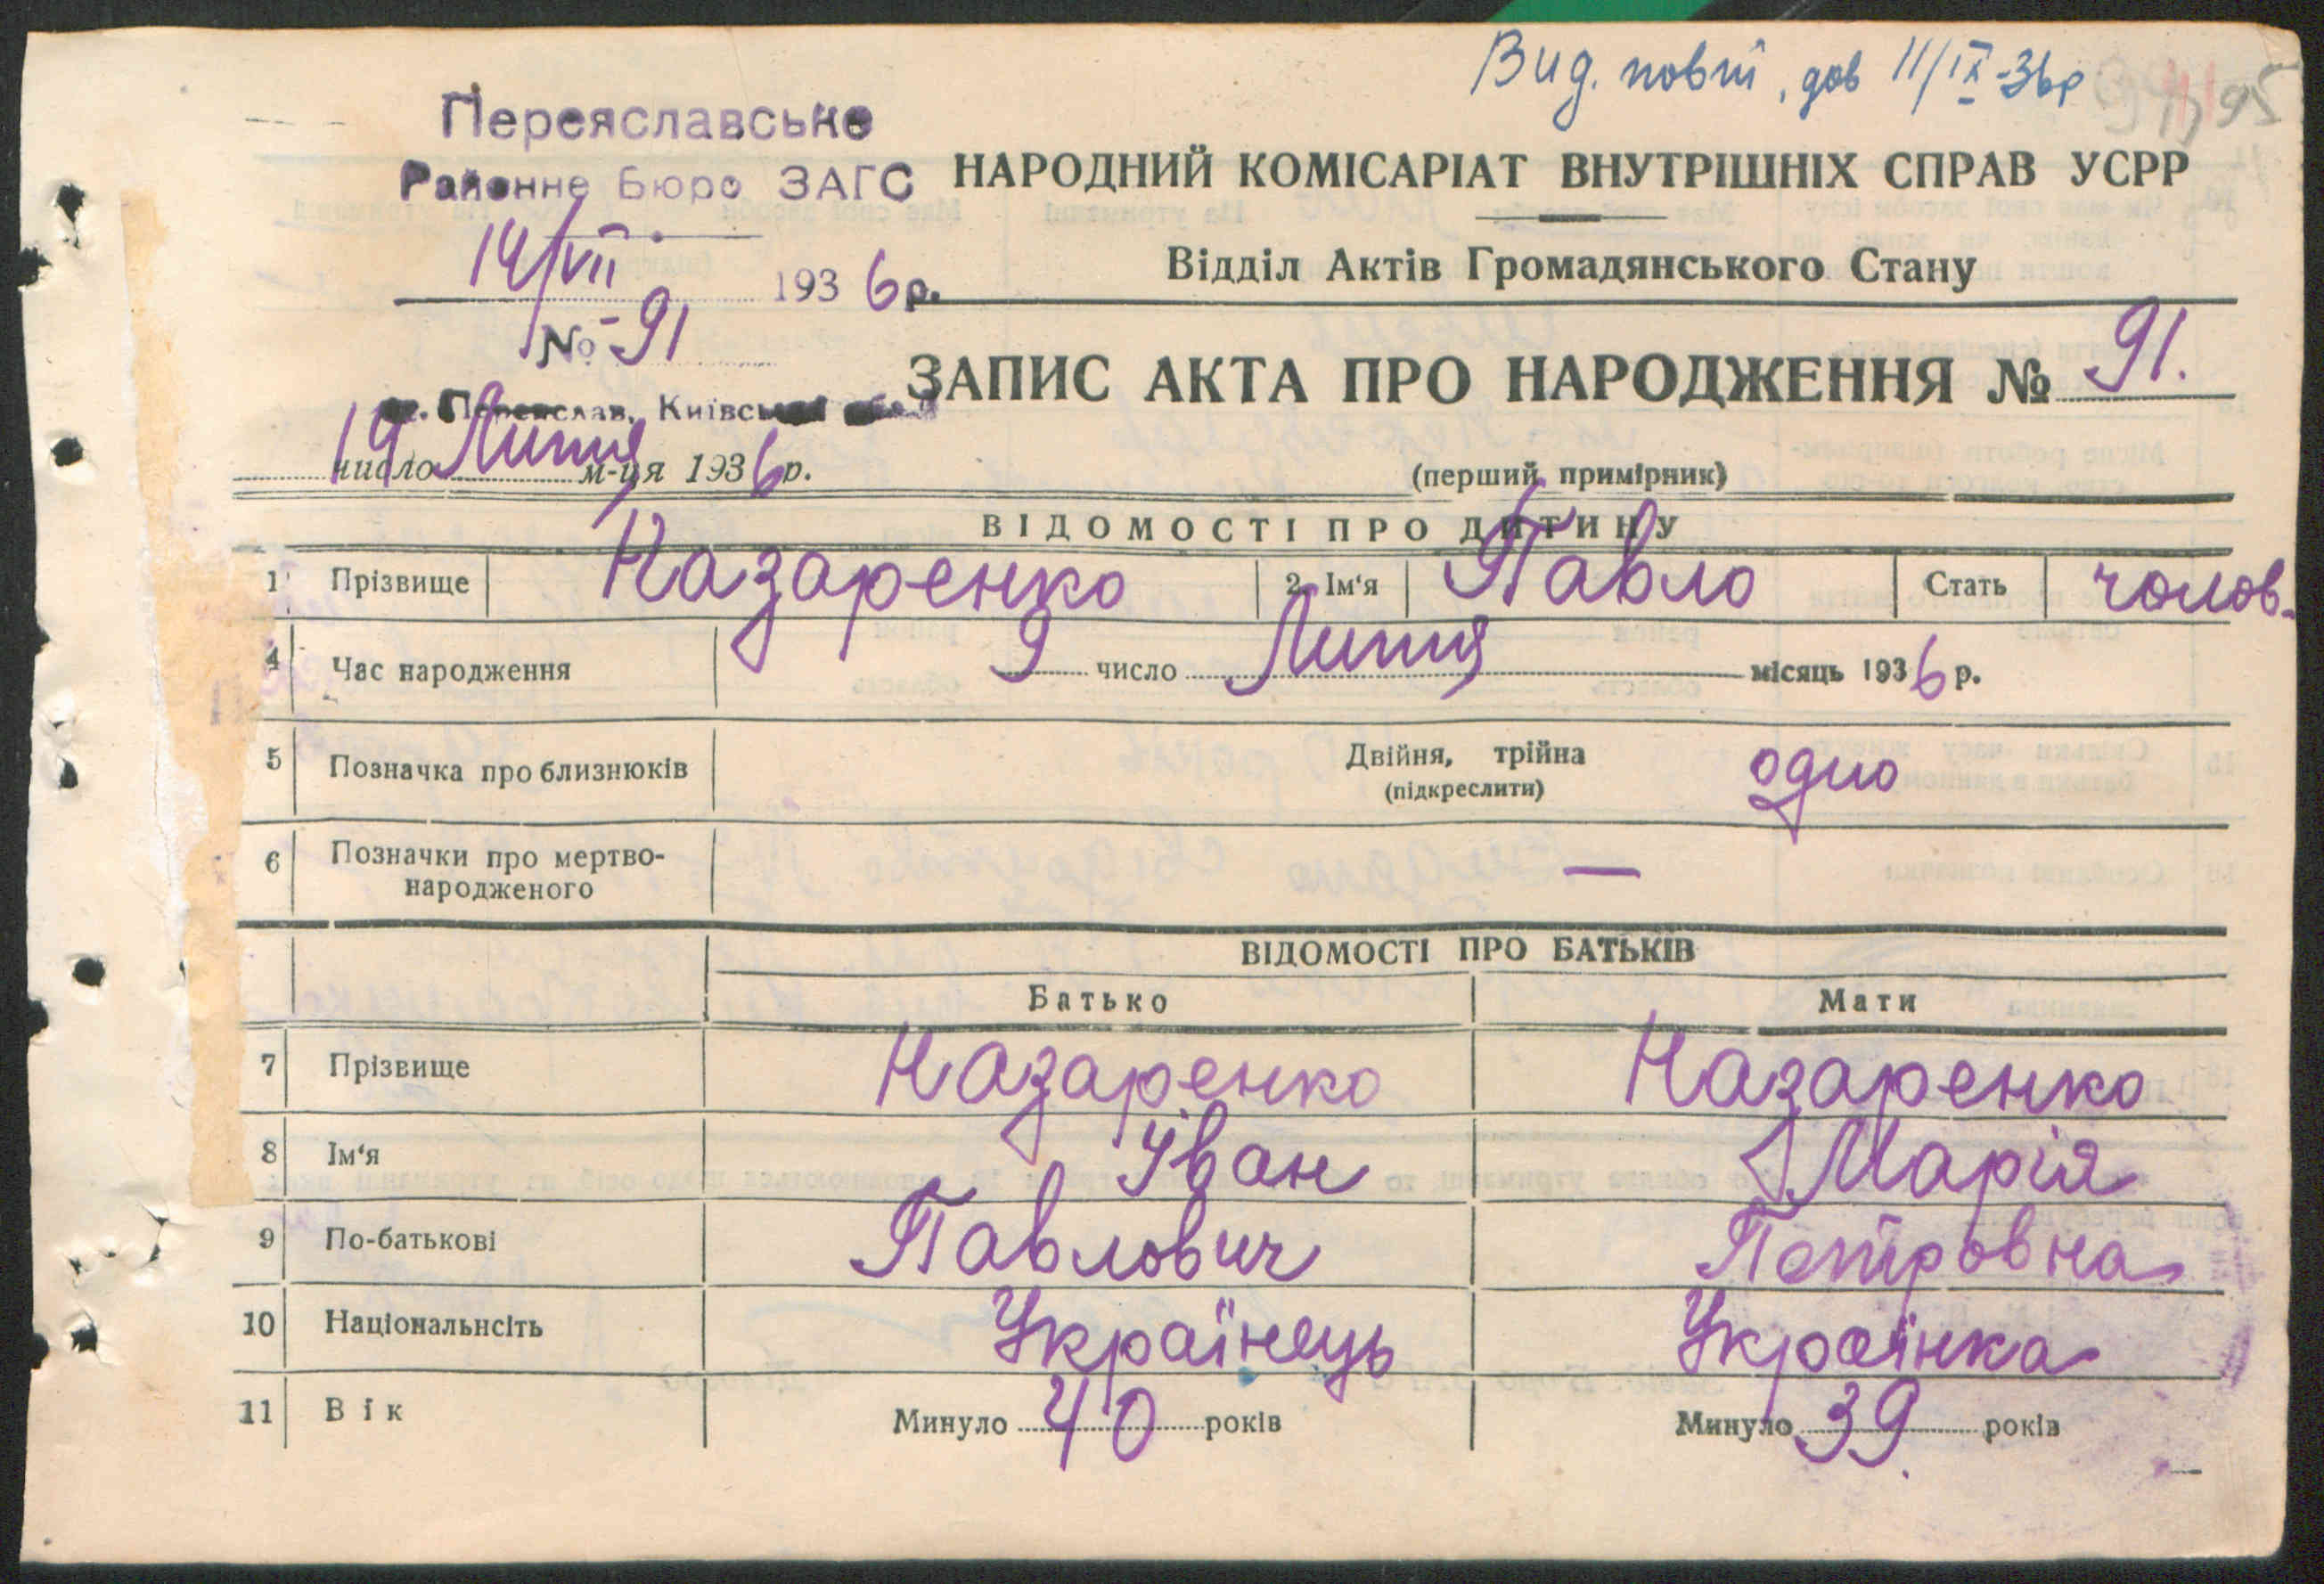 Вид. повт. дов 11/IX-36р
95
Переяславське
Районне Бюро ЗАГС
НАРОДНИЙ КОМІСАРІАТ ВНУТРІШНІХ СПРАВ УСРР
14/VII 1936р.
Відділ Актів Громадянського Стану
№ 91
ЗАПИС АКТА ПРО НАРОДЖЕННЯ № 91.
м. Переяслав, Київської обл.
число Липня м-ця 1936р.
(перший примірник)
ВІДОМОСТІ ПРО ДИТИНУ
1 Прізвище Назаренко 2. Ім'я Павло Стать чолов.
4 Час народження 9 число Липня місяць 1936 р.
5 Позначка про близнюків Двійня, трійна одно
(підкреслити)
6 Позначки про мертво-
народженого —
ВІДОМОСТІ ПРО БАТЬКІВ
Батько Мати
7 Прізвище Назаренко Назаренко
8 Ім'я Іван Марія
9 По-батькові Павлович Петровна
10 Національнсіть Українець Українка
11 Вік Минуло 40 років Минуло 39 років